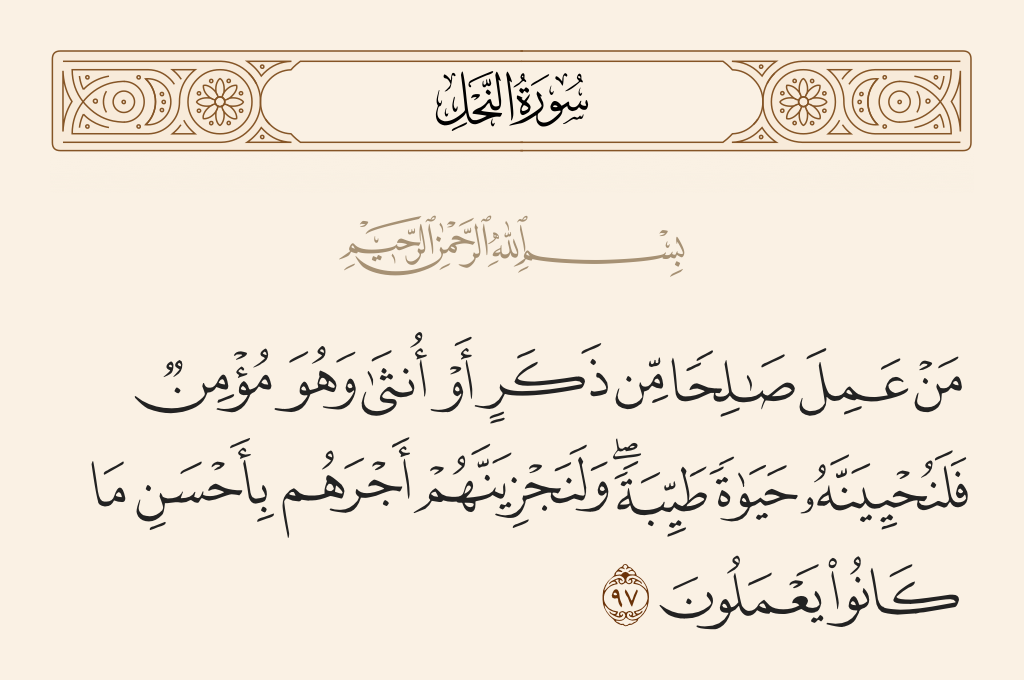 سُورَةُ النَّحْلِ
بِسْمِ ٱللَّهِ ٱلرَّحْمَٰنِ ٱلرَّحِيمِ
مَنْ عَمِلَ صَـٰلِحًا مِّن ذَكَرٍ أَوْ أُنثَىٰ وَهُوَ مُؤْمِنٌ
فَلَنُحْيِيَنَّهُۥ حَيَوٰةً طَيِّبَةً ۖ وَلَنَجْزِيَنَّهُمْ أَجْرَهُم بِأَحْسَنِ مَا
كَانُوا۟ يَعْمَلُونَ ٩٧